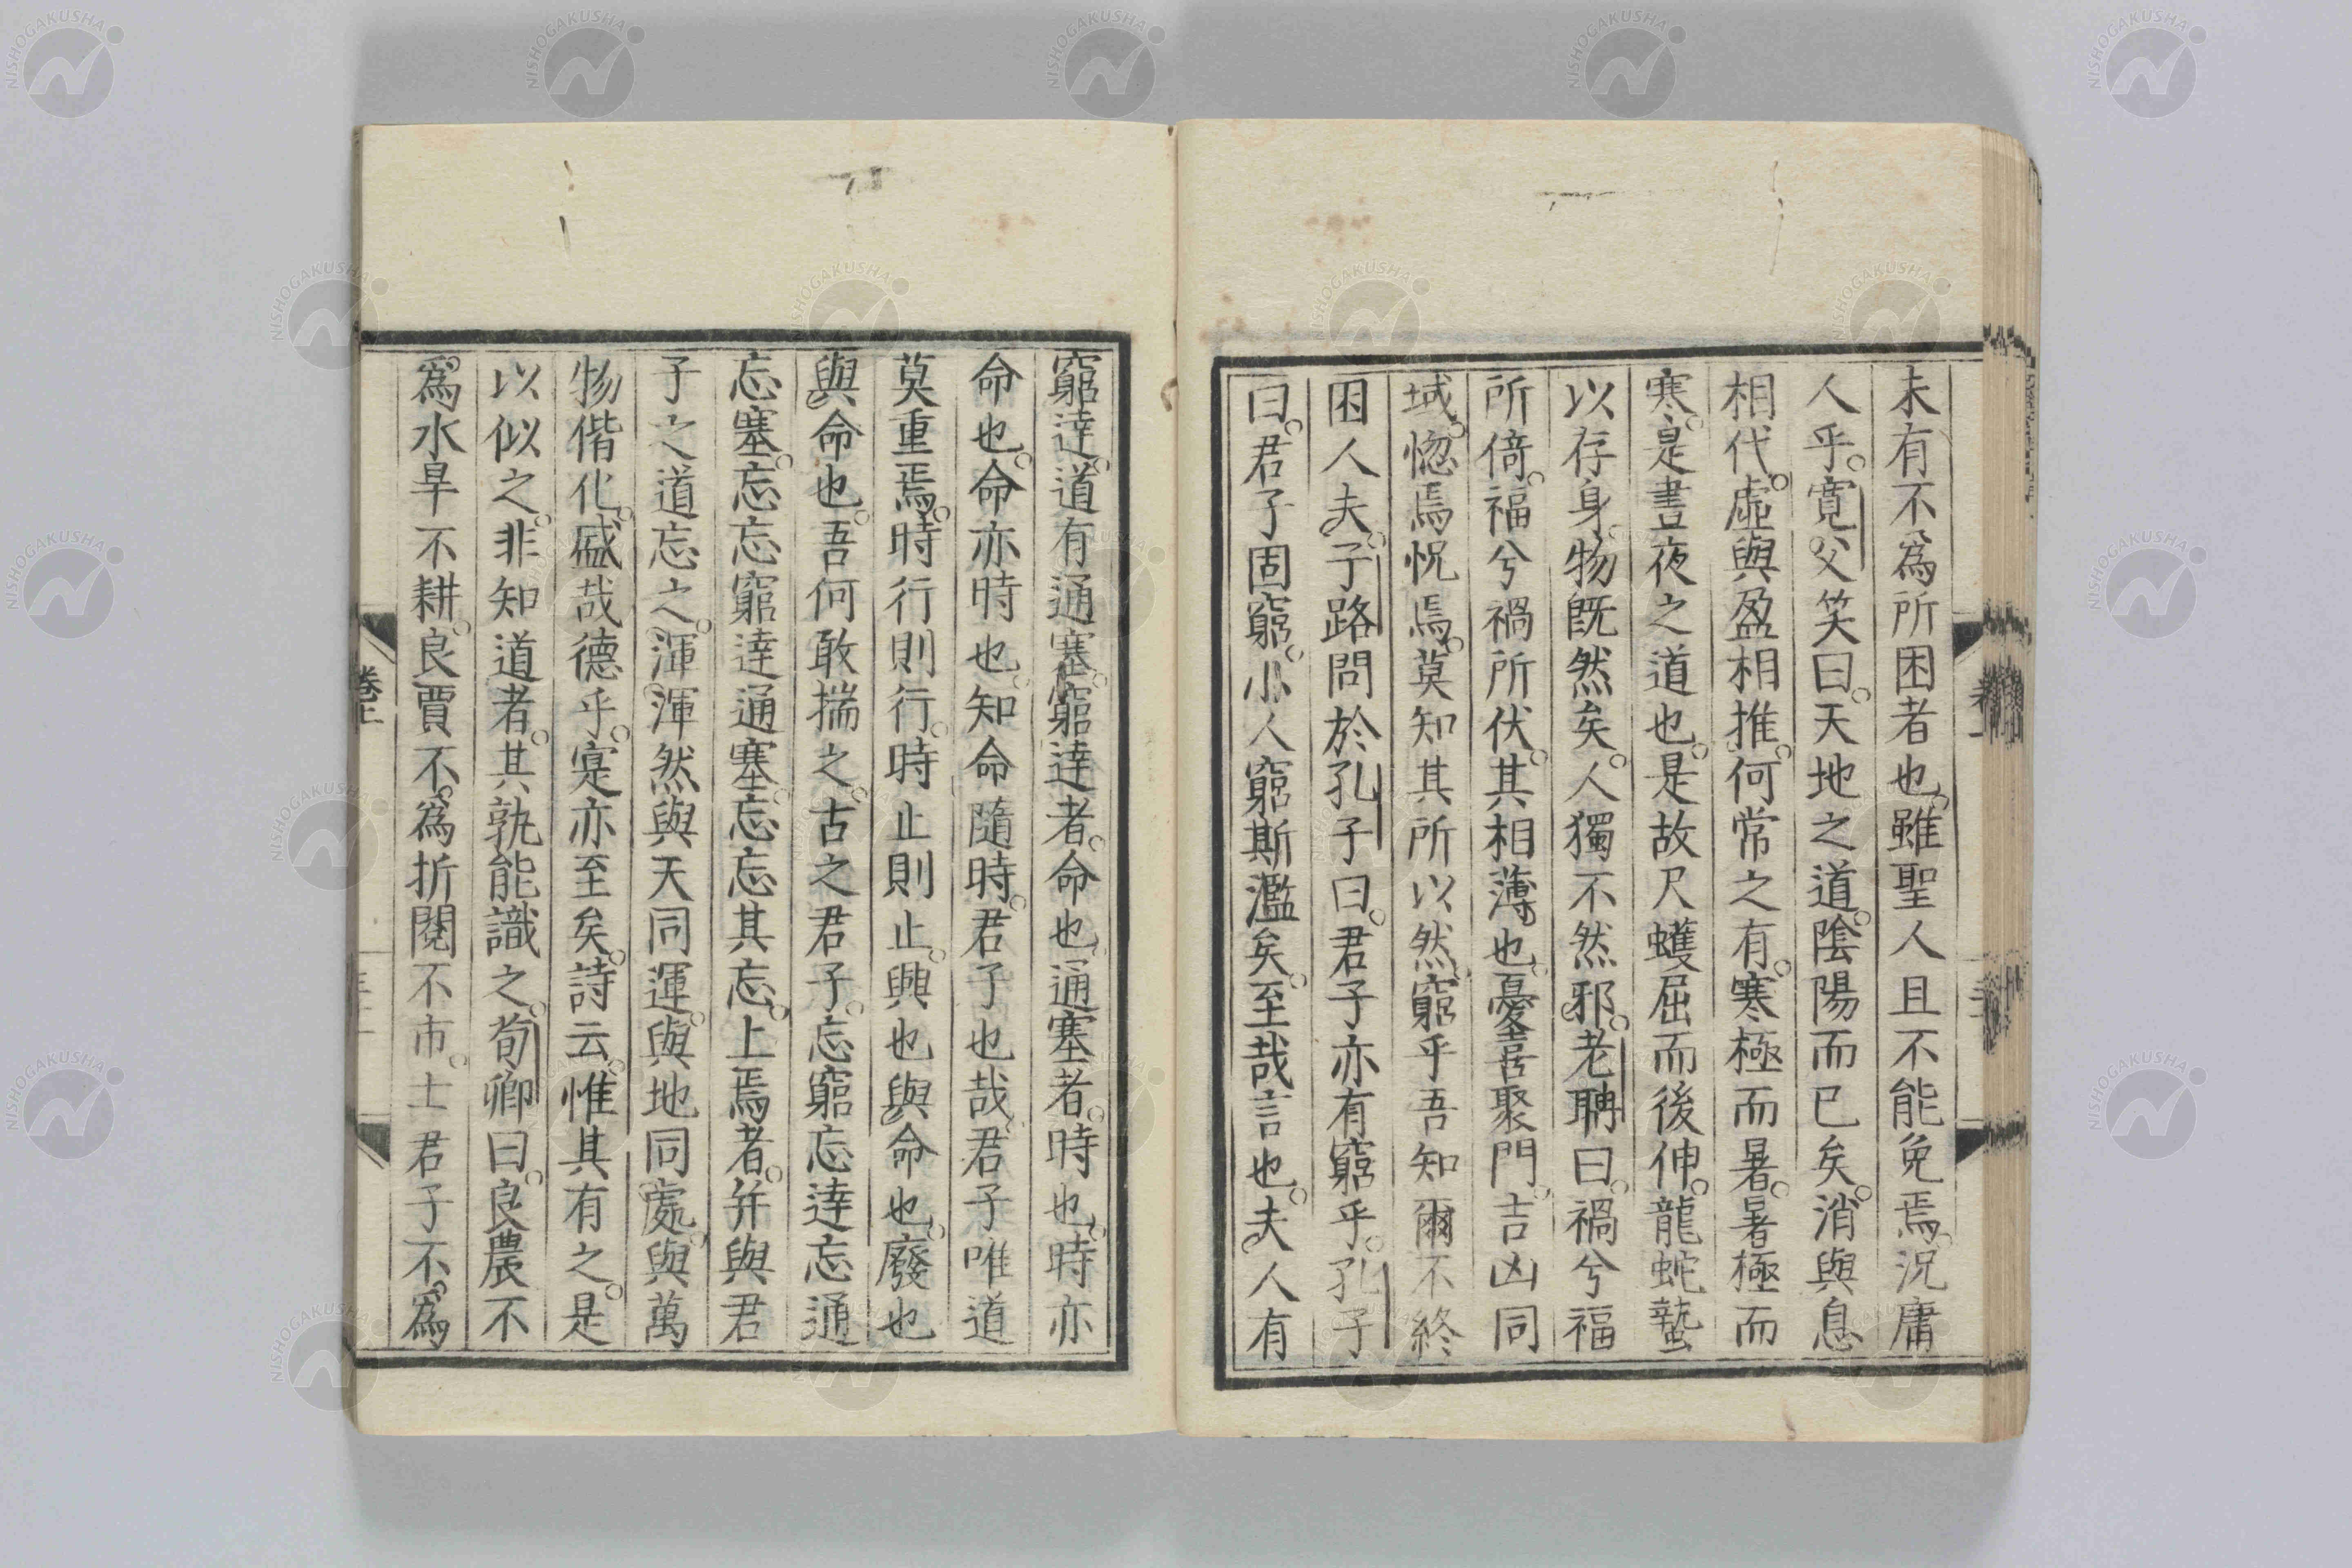 未有不為所困者也。雖聖人且不能免焉。況庸
人乎。寛父笑曰。天地之道。陰陽而已矣。消與息
相代。虛與盈相推。何常之有。寒極而暑。暑極而
寒。是晝夜之道也。是故尺蠖屈而後伸。龍蛇蟄
以存身。物既然矣。人獨不然邪。老聃曰。禍兮福
所倚。福兮禍所伏。其相薄也。憂喜聚門。吉凶同
域。惚焉怳焉。莫知其所以然。窮乎吾知爾不終
困人夫。子路問於孔子曰。君子亦有窮乎。孔子
曰。君子固窮。小人窮斯濫矣。至哉言也。夫人有
窮達。道有通塞。窮達者。命也。通塞者。時也。時亦
命也。命亦時也。知命隨時。君子也哉。君子唯道
莫重焉。時行則行。時止則止。興也與命也。廢也
與命也。吾何敢揣之。古之君子。忘窮忘達忘通
忘塞。忘忘窮達通塞。忘忘其忘。上焉者。并與君
子之道忘之。渾渾然與天同運。與地同處。與萬
物偕化。盛哉德乎。寔亦至矣。詩云。惟其有之。是
以似之。非知道者。其孰能識之。荀卿曰。良農不
為水旱不耕。良賈不為折閱不市。士君子不為
卷上
NISHOGAKUSHA